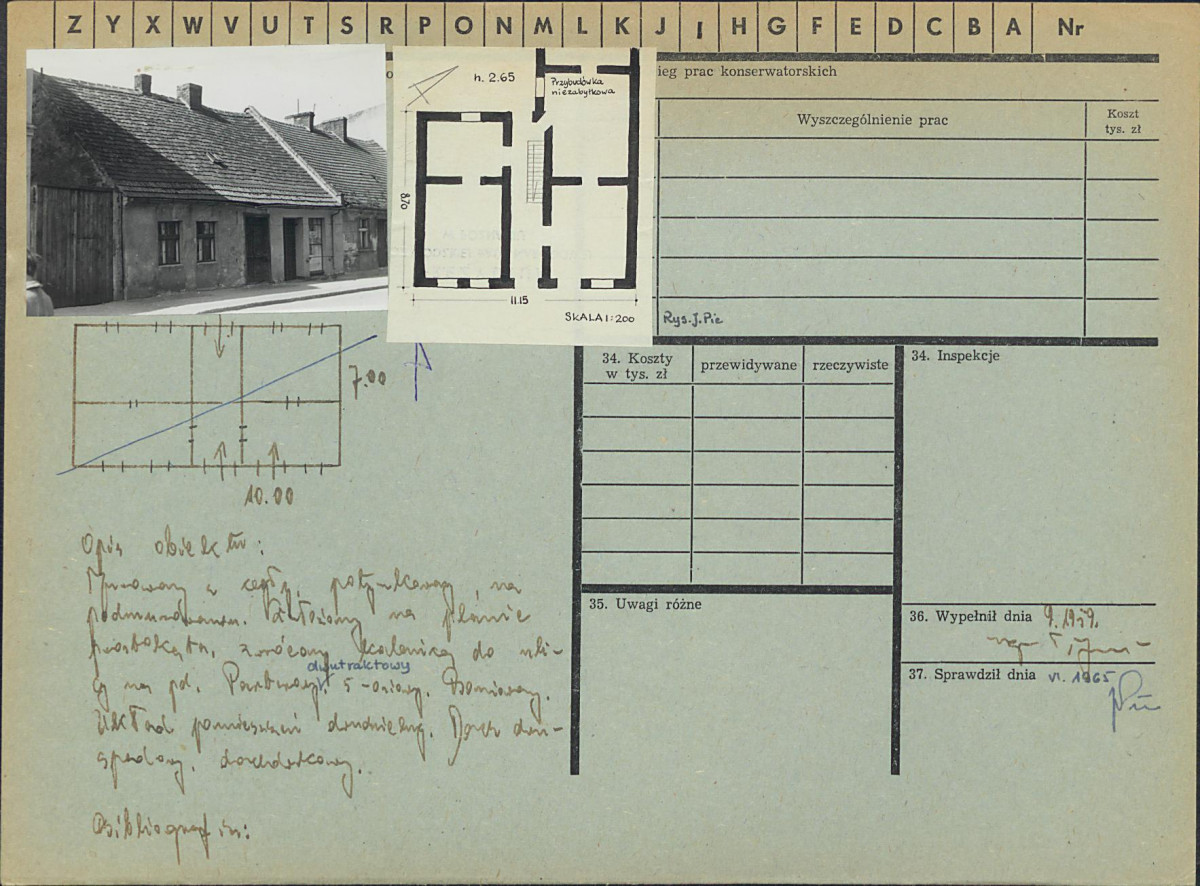 Z Y X W V U T S R P O N M L K J I H G F E D C B A Nr
ieg prac konserwatorskich
Wyszczególnienie prac
Koszt
tys. zł
h. 2.65
Przybudówka
niezabytkowa
8.70
11.15
SKALA 1:200
Rys. J. Pic
7.00
10.00
34. Koszty
w tys. zł
przewidywane
rzeczywiste
34. Inspekcje
35. Uwagi różne
36. Wypełnił dnia 9.1959.
37. Sprawdził dnia VI. 1965
Opis obiektu:
Murowany z cegły, potynkowany, na
podmurowaniu. Założony na planie
prostokąta, zwrócony kalenicą do uli-
dwutraktowy
cy na pd. Parterowy, 5-osiowy. Boniowany.
Układ pomieszczeń dwudzielny. Dach dwu-
spadowy, dachówkowy.
Bibliografia: